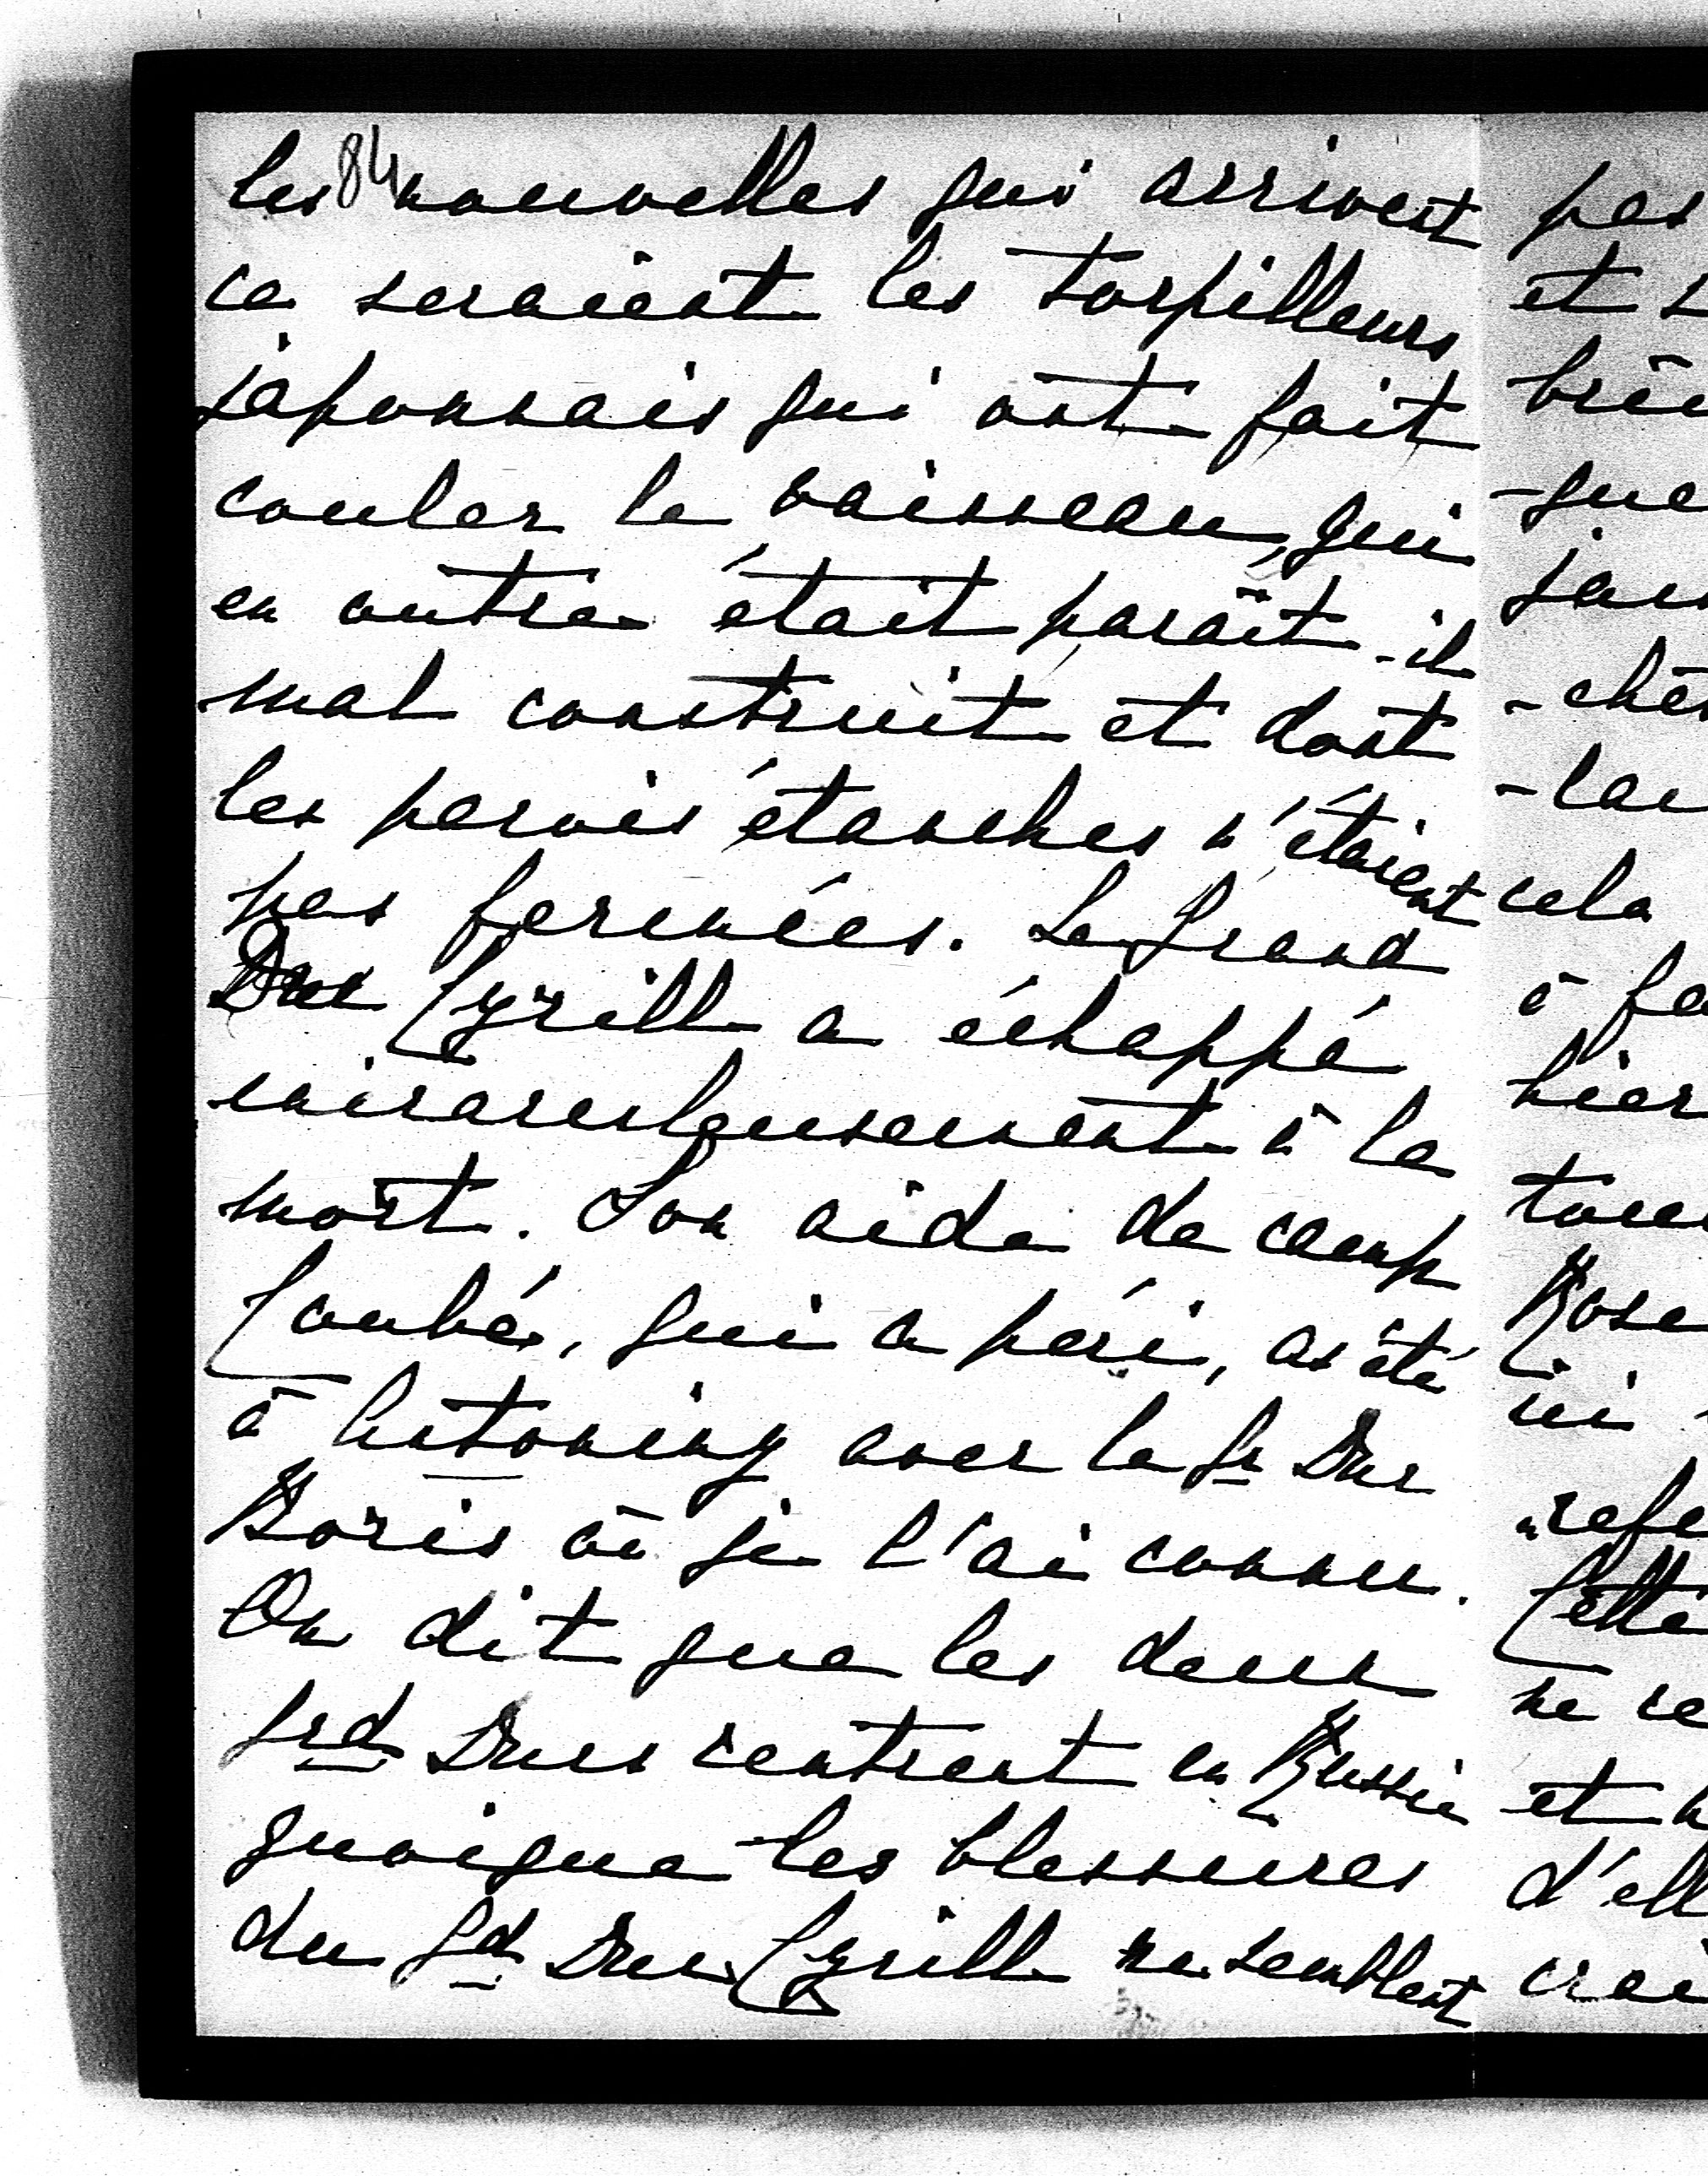 84
les nouvelles qui arrivent
ce seraient les torpilleurs
japonnais qui ont fait
couler le vaisseau, qui
en outre était parait-il
mal construit et dont
les parois étanches n'étaient
pas fermées. Le Grand
Duc Cyrille a échappé
miraculeusement à la
mort. Son aide de camp
Coubé, qui a péri, a été
à avec le Gr Duc
Boris où je l'ai connu.
On dit que les deux
Grd Ducs rentrent en Russie
quoique les blessures
du Gd Duc Cyrille ne semblent
pas
et
-que
cela
à
hier
Cette
ne
et